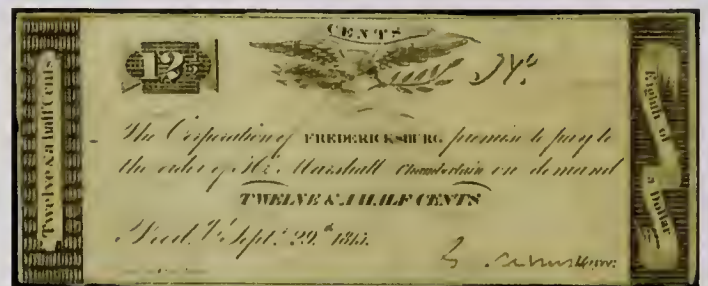 Twelve & a half Cents
CENTS
12½
No
The Corporation of FREDERICKSBURG promise to pay to
the order of Mr. Marshall Chamberlain on demand
TWELVE & A HALF CENTS
Fred. Va Sept. 29th 1815.
Eighth of
a Dollar